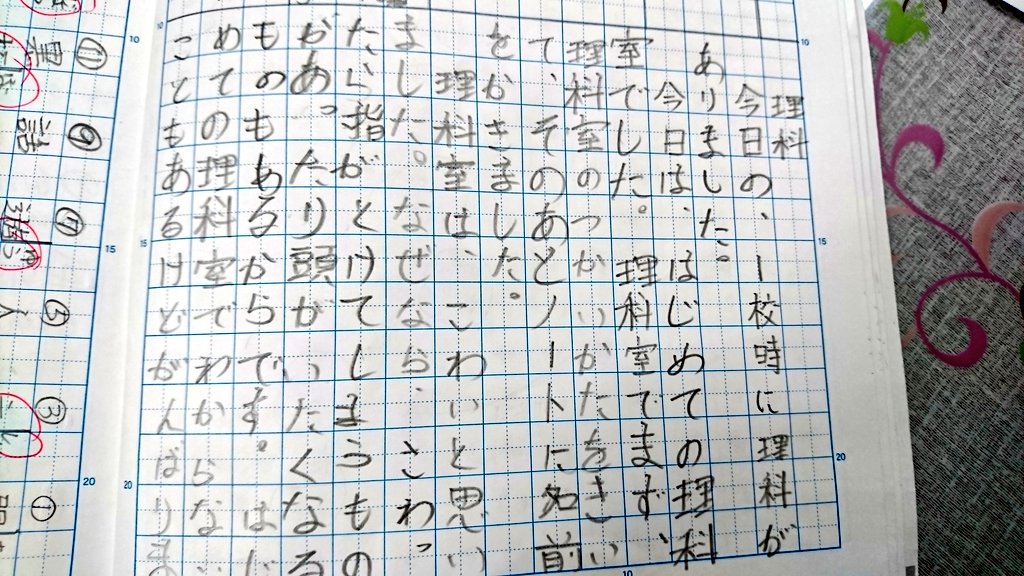 理科
今日の、一校時に理科が
ありました。
今日は、はじめての理科
室でした。理科室でまず、
理科室のつかいかたをきい
て、そのあとノートに名前
をかきました。
理科室は、こわいと思い
ました。なぜなら、こわっ
たい指がとけてしまうもの
があったり頭がいたくなる
ものもあるからです。はじ
めての理科室でわからない
こともあるけどがんばりま